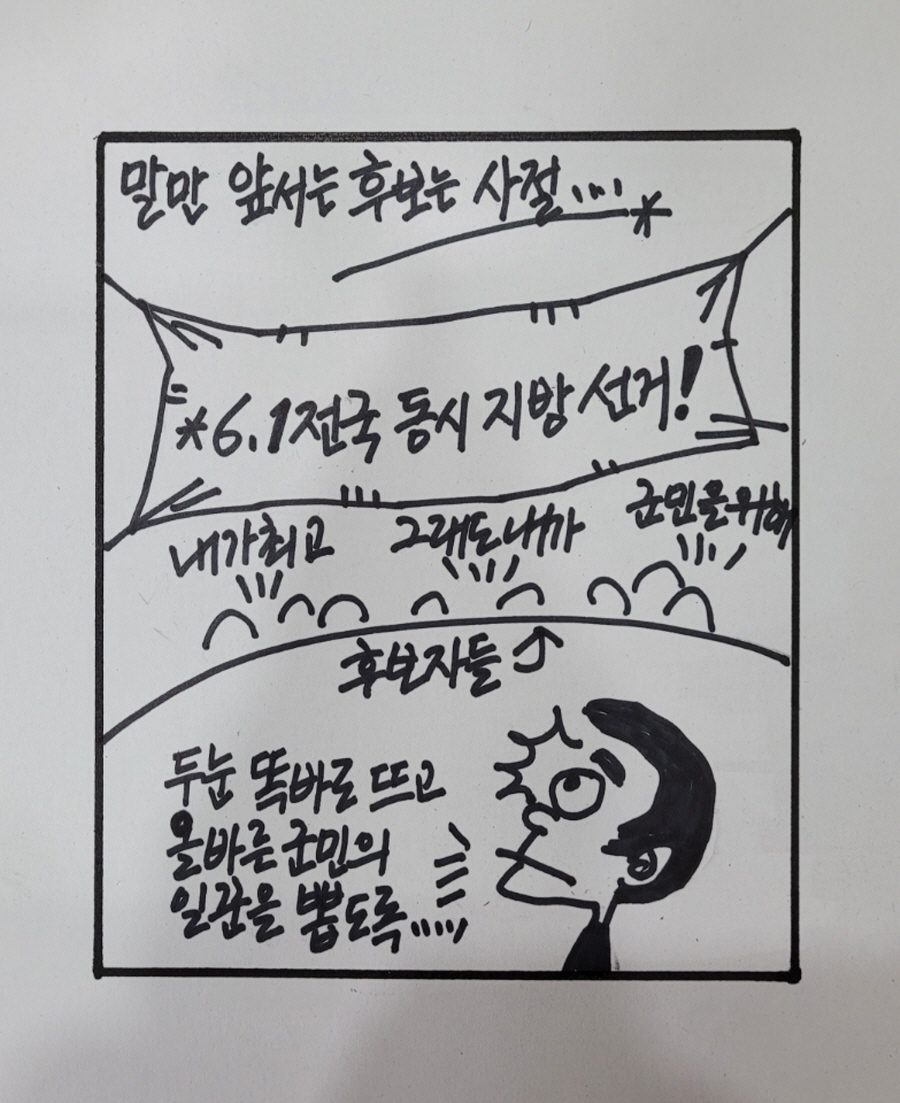 말만 앞서는 후보는 사절....
*6.1 전국 동시 지방 선거!
내가 최고
그래도 내가
군민을 위해
후보자들
두눈 똑바로 뜨고
올바른 군민의
일꾼을 뽑도록.....